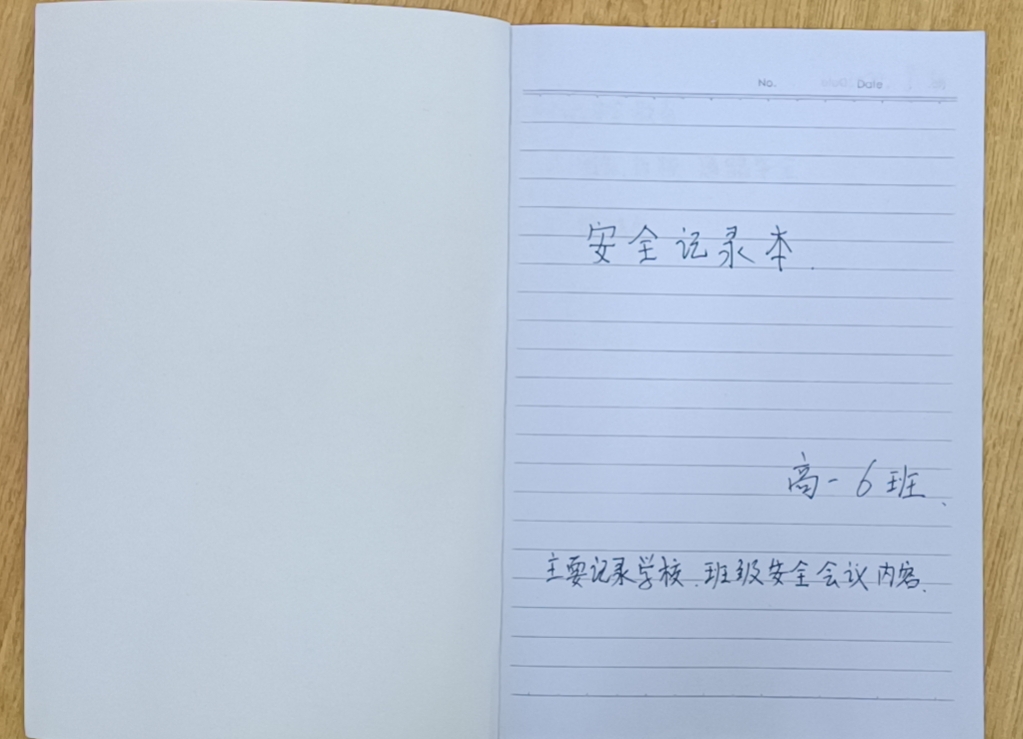 No.    Date
安全记录本.
高一6班、
主要记录学校、班级安全会议内容、